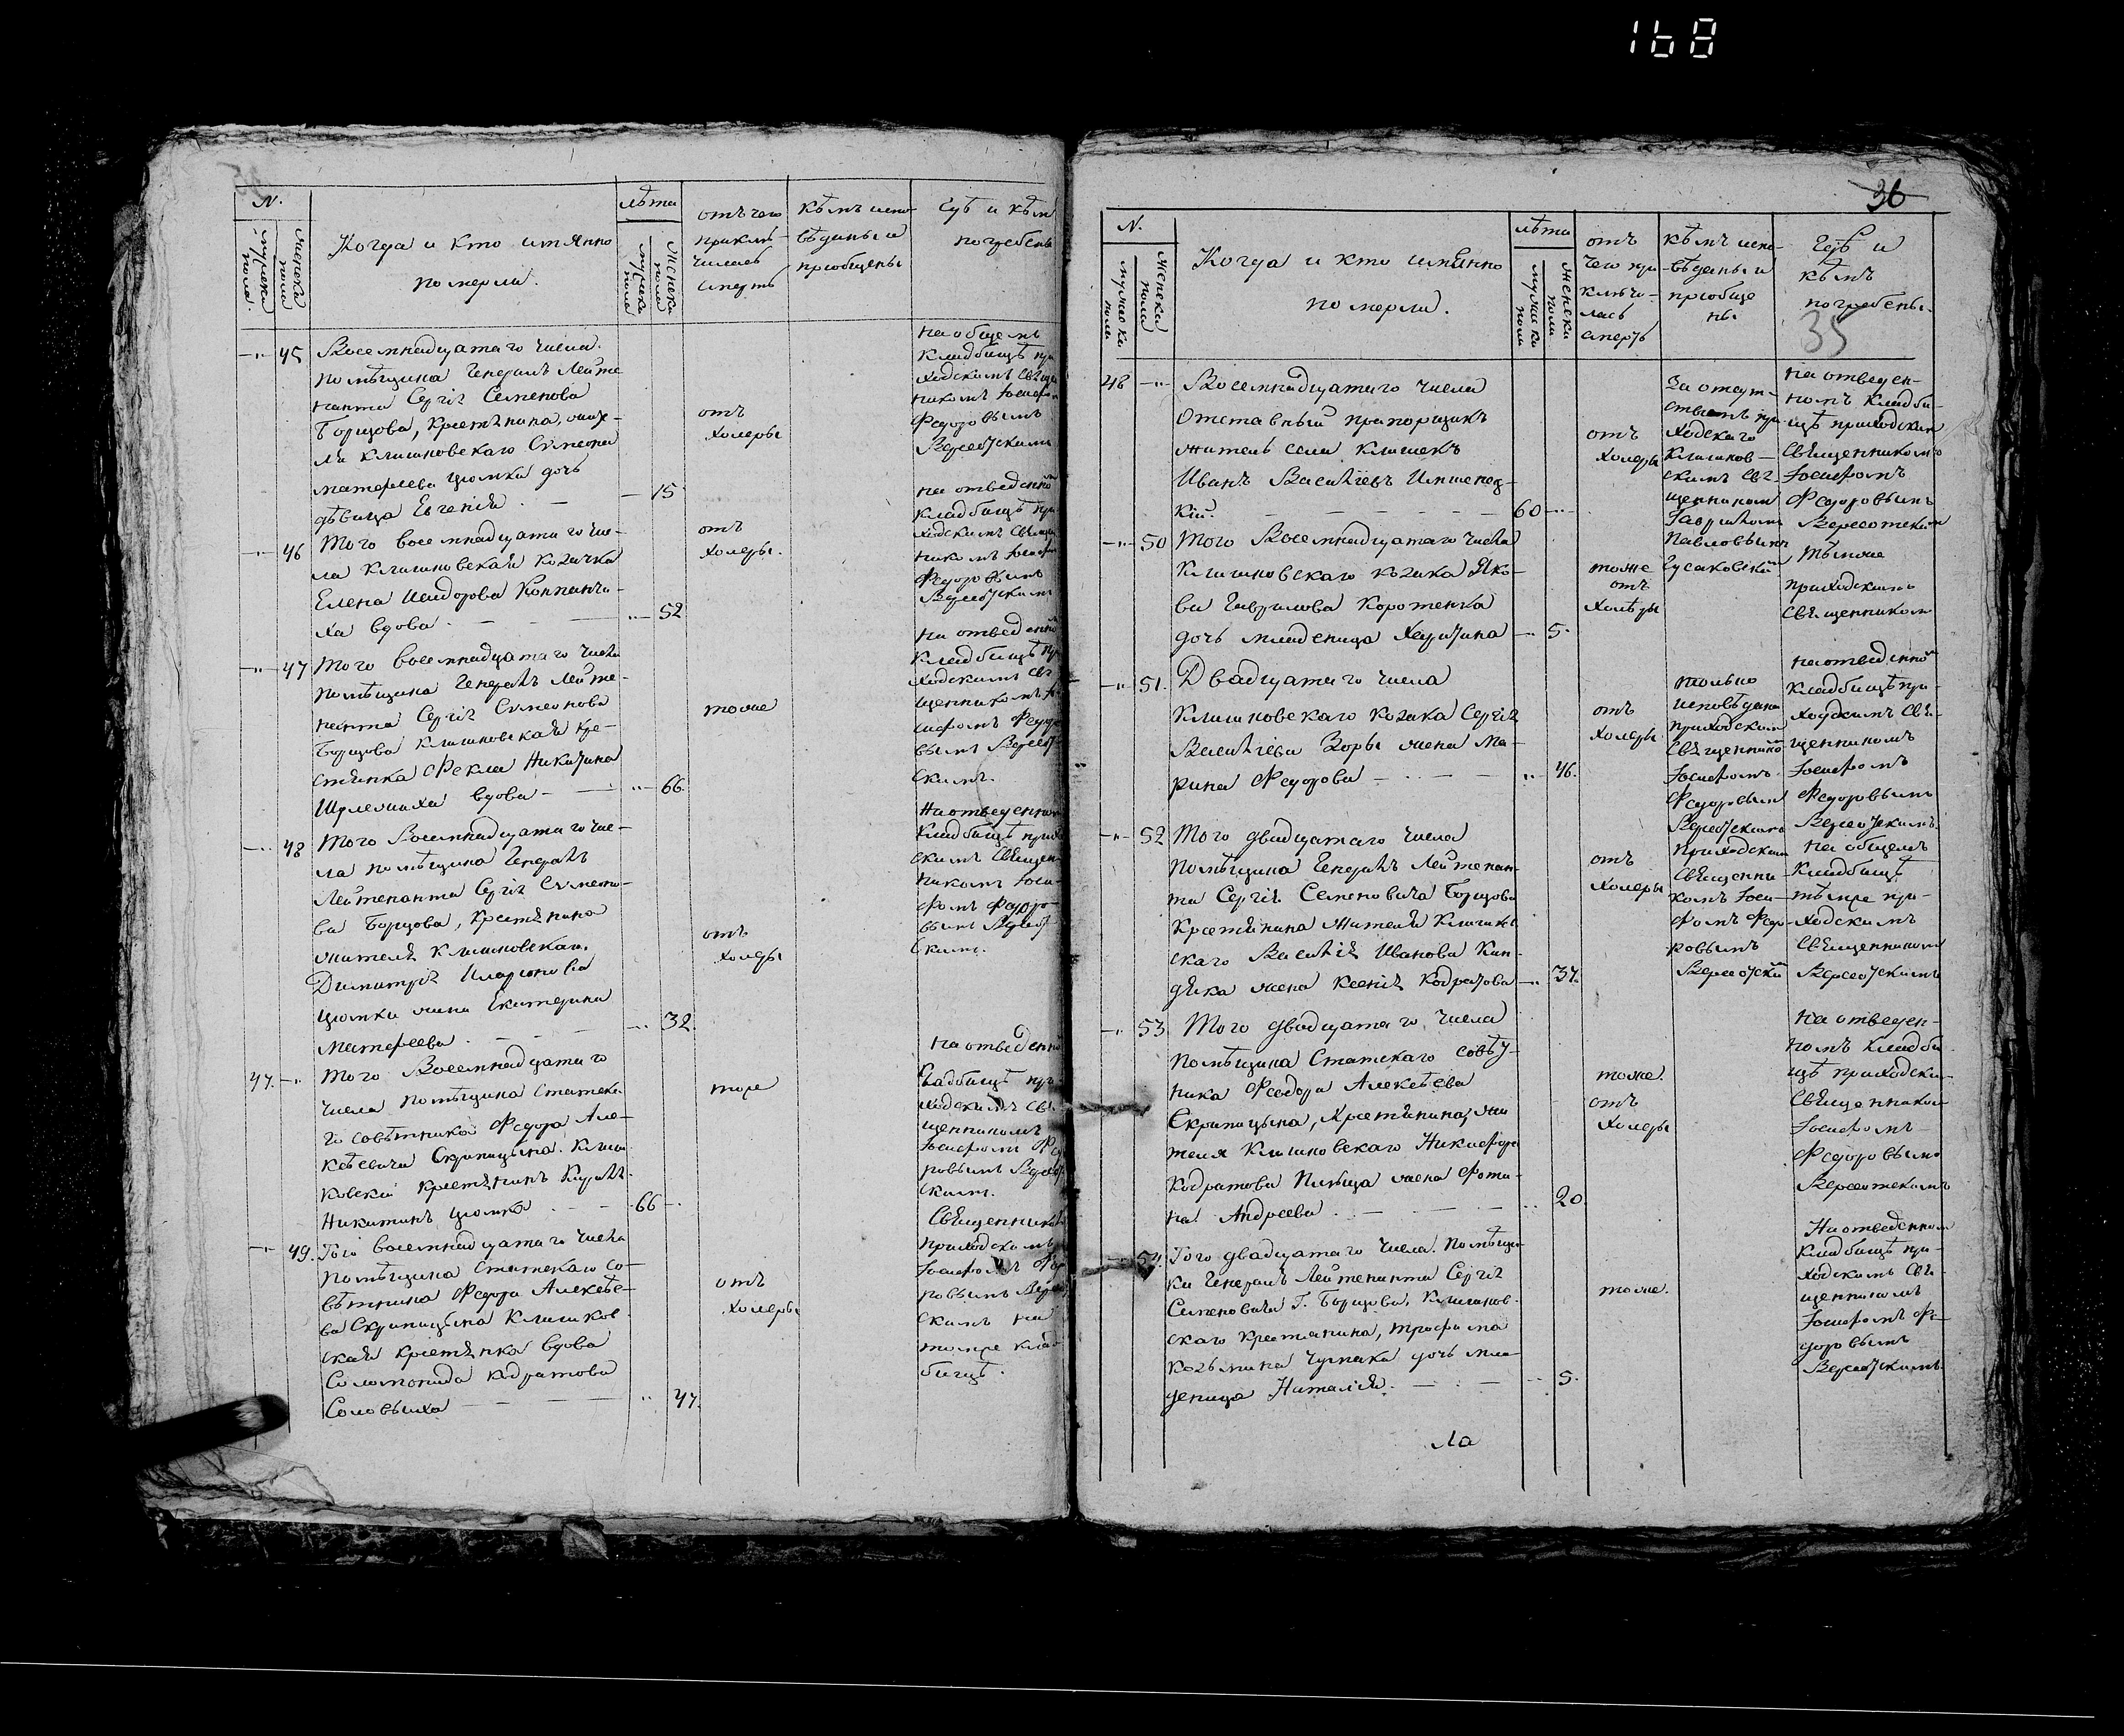 168
N.
мужеска пола.
женска пола
Когда и кто имянно
померли.
лѣта
мужеска пола
женска пола
отъ чего
приклю-
чилась
смерть
кѣмъ испо-
вѣданы и
пріобщены
Гдѣ и кѣм
погребены
45
Восемнадцатаго числа
помѣщика Генералъ Лейте
нанта Сергія Семенова
Борщова, крестьянина, жите-
ля Клишковскаго Симеона
матфеева Цюмка дочь
дѣвица Евгенія
15
отъ
холеры
на общемъ
кладбищѣ при
ходскимъ свяще
никомъ Іосифом
Федоровымъ
46
Того восемнадцатаго чис-
ла Клишковская козачка
Елена
ха вдова
52
отъ
холеры.
на отведенно
кладбищѣ при
ходскимъ свяще
никомъ Іосиф
Федоровымъ
47
Того восемнадцатаго числа
помѣщика Генералъ Лейте-
нанта Сергія Симеонова
Борщова Клишковская кре-
стьянка Фекла Никитина
вдова
66
тоже
на отведенно
кладбищѣ при
ходскимъ свя-
щенникомъ
сифомъ Федо
вымъ
скимъ.
48
Того Восемнадцатаго чис-
ла помѣщика Генералъ
Лейтенанта Сергія Симеоно-
ва Борщова, крестьянина
жителя Клишковскаго
Димитрія Иларіонова
Цюмки жена Екатерина
Матфеева
32.
отъ
холеры
На отведенном
кладбищѣ прихо
скимъ Священ
никомъ Іоси-
фомъ Федоро-
вымъ
скимъ.
47.
Того Восемнадцатаго
числа помѣщика Статска-
го совѣтника Федора Але-
ксѣевича Скрипицына Клиш
ковскій крестьянинъ Кирилъ
Никитинъ Цюмка
66
тоже
На отведенно
кладбищѣ при
ходскимъ Свя-
щенникомъ
Іосифомъ Фе
ровымъ
скимъ.
49.
Того восемнадцатаго числа
помѣщика Статскаго со-
вѣтника Федора Алексѣе-
ва Скрипицына Клишков-
ская крестьянка вдова
Соломонида Кодратова
Соловьиха
47.
отъ
холеры
Священником
приходскимъ
Іосифомъ Фед
ровымъ
скимъ на
томже клад
бищѣ.
36
35
N.
мужеска пола
женска пола
Когда и кто имянно
померли.
лѣта
мужеска пола
женска пола
отъ
чего при
ключи-
лась
смерть
кѣмъ испо-
вѣданы и
пріобще
ны
Гдѣ и
кѣмъ
погребены.
48
Восемнадцатаго числа
Отставный прапорщикъ
житель села Клишекъ
Иванъ Василіевъ
кій.
60
отъ
холеры
За отсут-
ствіемъ при
ходскаго
Клишков-
скимъ свя-
щенником
Гавріиломъ
Павловымъ
Гусаковскимъ
на отведен-
номъ кладби-
щѣ приходским
Священникомъ
Іосифомъ
Федоровымъ
50
Того Восемнадцатаго числа
Клишковскаго козака Яко-
ва Гаврилова Коротенка
дочь младеница Харитина
5.
тоже
отъ
холеры
Тѣмже
приходскимъ
Священником
51.
Двадцатаго числа
Клишковскаго козака Сергія
Василіева Зоры жена Ма-
рина Федорова
46.
отъ
холеры
только
исповѣдана
приходским
Священнико
Іосифомъ
Федоровым
на отведенно
кладбищѣ при-
ходскимъ Свя-
щенникомъ
Іосифомъ
Федоровымъ
52
Того двадцатаго числа
помѣщика Генералъ Лейтенан-
та Сергія Семеновича Борщова
Крестьянина жителя Клишков
скаго Василія Иванова Кин-
дяка жена Ксенія Кодратова
37.
отъ
холеры
приходским
священни-
комъ Іоси-
фомъ Федо-
ровымъ
на общемъ
кладбищѣ
тѣмже при-
ходскимъ
Священником
53
Того двадцатаго числа
помѣщика Статскаго совѣт-
ника Феодора Алексѣева
Скрипицына, крестьянина, жи
теля Клишковскаго Никифора
Кодратова Пивца жена Фоти-
на Андреева
20.
тоже.
отъ
холеры
на отведен-
номъ кладби-
щѣ приходски-
Священником
Іосифомъ
Федоровымъ
54.
Того двадцатаго числа. Помѣщи-
ка Генералъ Лейтенанта Сергія
Семеновича Г. Борщова, Клишков-
скаго крестьянина, трофима
Козьмина Чумака дочь мла-
деница Наталія.
5.
тоже.
На отведенном
кладбищѣ при-
ходскимъ Свя-
щенникомъ
Іосифомъ Фе-
доровымъ
Ла